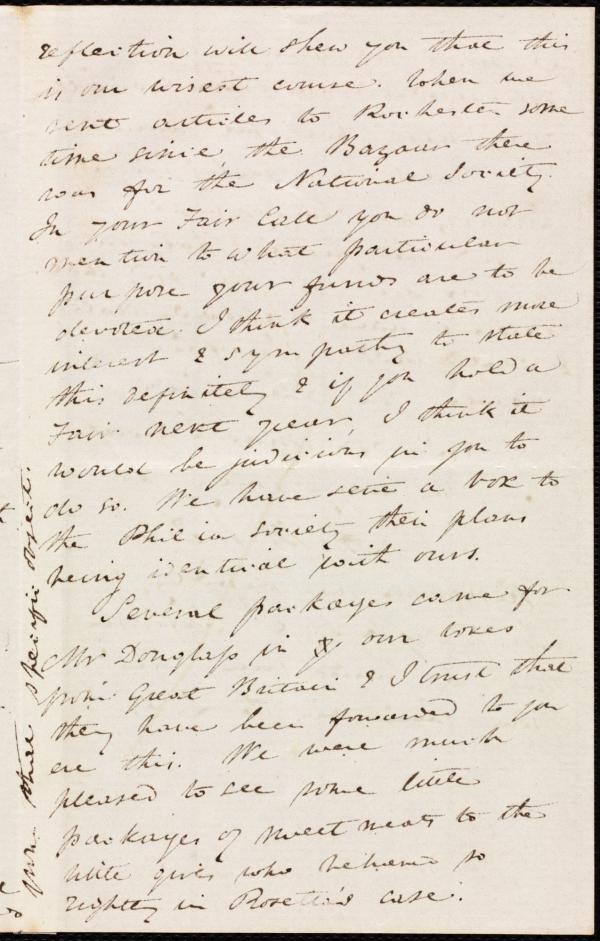 reflection will shew you that this
is our wisest course. When we
sent articles to Rochester some
time since, the Bazaar there
was for the National Society.
In your Fair Call you do not
mention to what particular
purpose your funds are to be
devoted. I think it creates more
interest & sympathy to state
this definitely & if you hold a
Fair next year, I think it
would be judicious in you to
do so. We have sent a box to
the Phil ia Society their plans
being identical with ours.
Several packages came for
Mr Douglass in our boxes
from Great Britain & I trust that
they have been forwarded to you
ere this. We were much
pleased to see some little
packages of sweetmeats to the
little girls who behaved so
rightly in Rosetta's case.
what specific object.